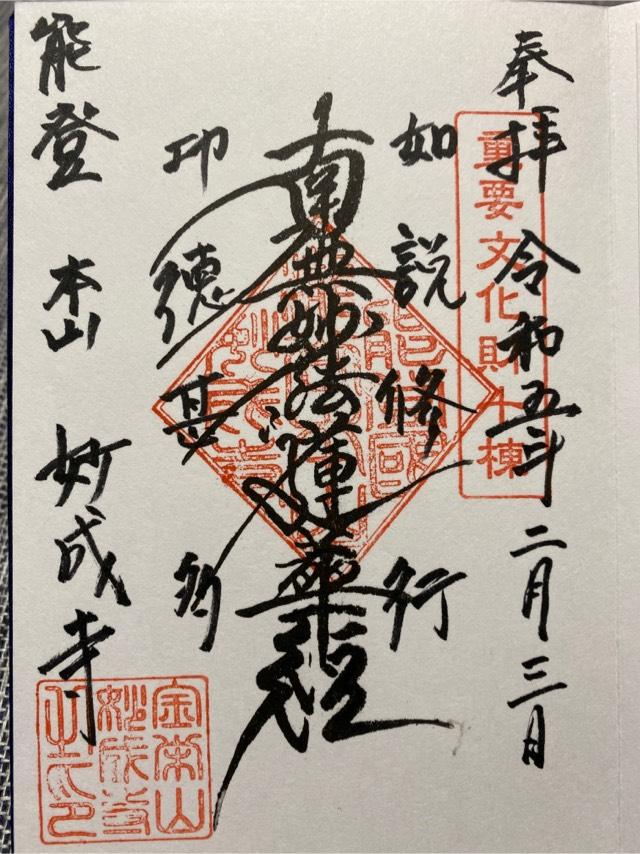 奉拝 令和五年二月三日
重要文化財十棟
如説修行
南無妙法蓮華経
功徳甚多
能登 本山 妙成寺
金榮山
妙成寺
之印